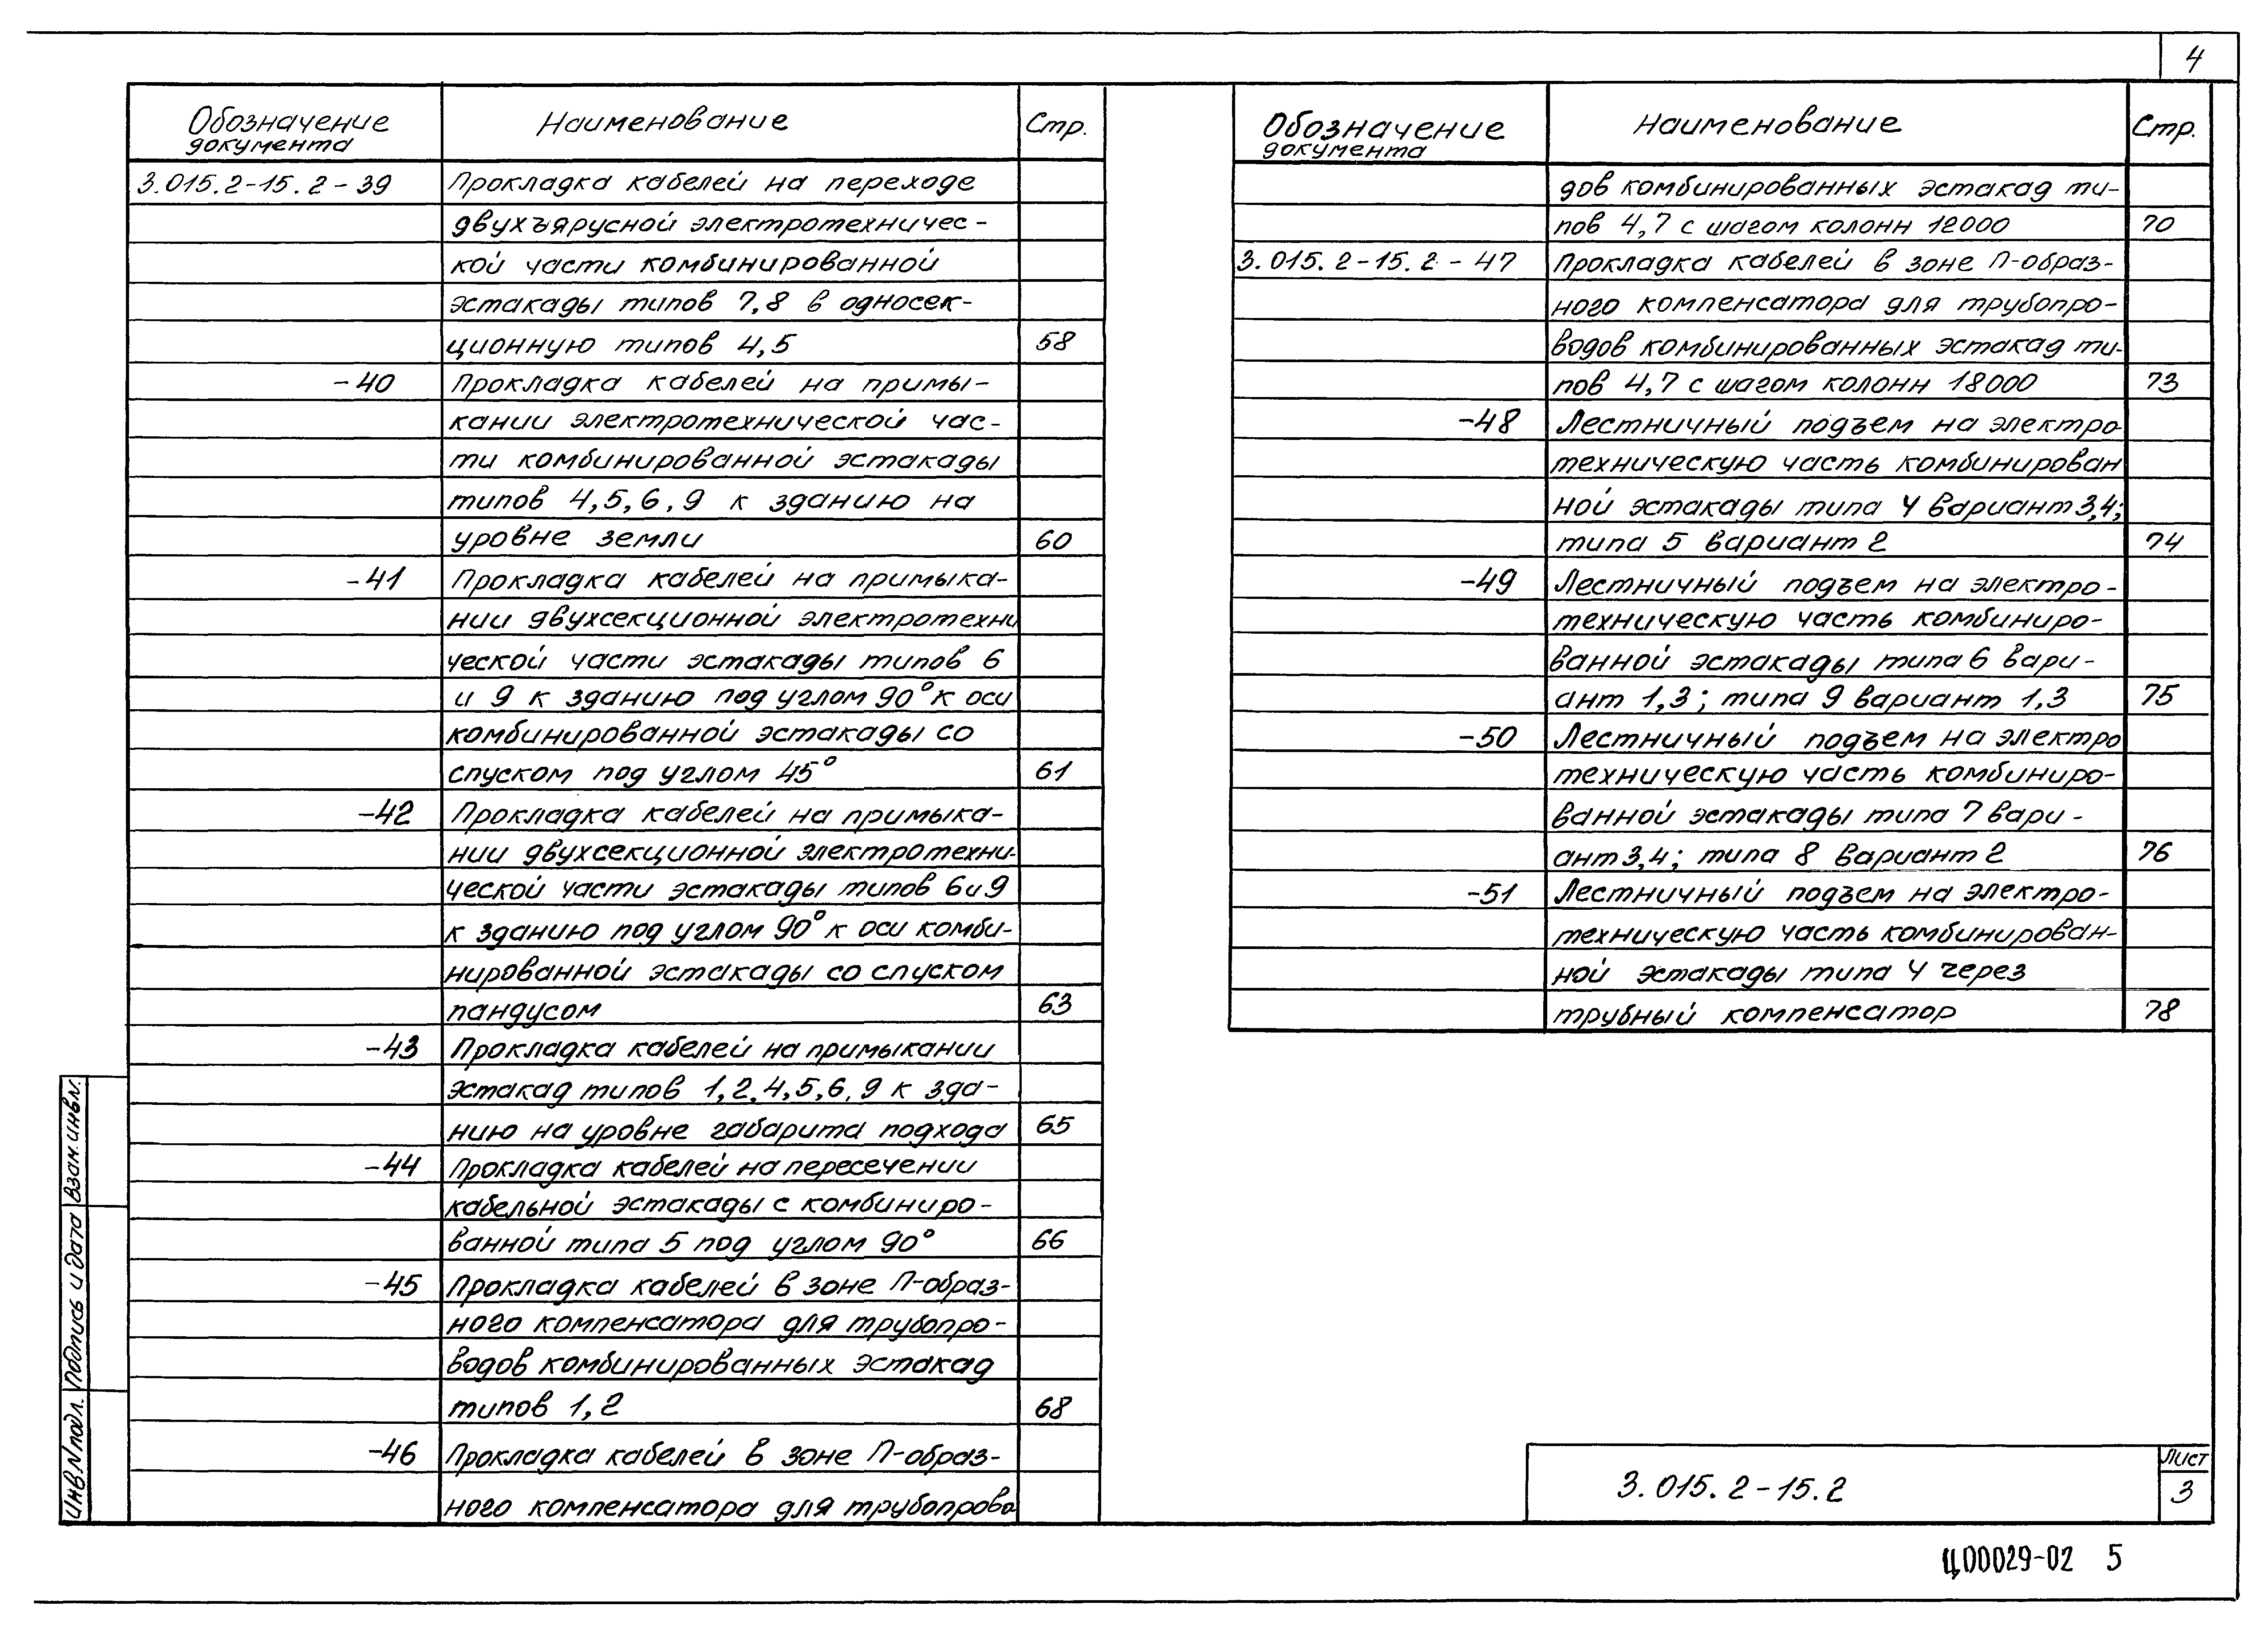 4
Обозначение документа Наименование Стр.
3.015.2-15.2-39 Прокладка кабелей на переходе
двухъярусной электротехничес-
кой части комбинированной
эстакады типов 7,8 в односек-
ционную типов 4,5 58
-40 Прокладка кабелей на примы-
кании электротехнической час-
ти комбинированной эстакады
типов 4,5,6,9 к зданию на
уровне земли 60
-41 Прокладка кабелей на примыка-
нии двухсекционной электротехни
ческой части эстакады типов 6
и 9 к зданию под углом 90° к оси
комбинированной эстакады со
спуском под углом 45° 61
-42 Прокладка кабелей на примыка-
нии двухсекционной электротехни-
ческой части эстакады типов 6 и 9
к зданию под углом 90° к оси комби-
нированной эстакады со спуском
пандусом 63
-43 Прокладка кабелей на примыкании
эстакад типов 1,2,4,5,6,9 к зда-
нию на уровне габарита подхода 65
-44 Прокладка кабелей на пересечении
кабельной эстакады с комбиниро-
ванной типа 5 под углом 90° 66
-45 Прокладка кабелей в зоне П-образ-
ного компенсатора для трубопро-
водов комбинированных эстакад
типов 1,2 68
-46 Прокладка кабелей в зоне П-образ-
ного компенсатора для трубопрово
Обозначение документа Наименование Стр.
дов комбинированных эстакад ти-
пов 4,7 с шагом колонн 12000 70
3.015.2-15.2-47 Прокладка кабелей в зоне П-образ-
ного компенсатора для трубопро-
водов комбинированных эстакад ти-
пов 4,7 с шагом колонн 18000 73
-48 Лестничный подъем на электро
техническую часть комбинирован
ной эстакады типа 4 вариант 3,4;
типа 5 вариант 2 74
-49 Лестничный подъем на электро-
техническую часть комбиниро-
ванной эстакады типа 6 вари-
ант 1,3; типа 9 вариант 1,3 75
-50 Лестничный подъем на электро
техническую часть комбиниро-
ванной эстакады типа 7 вари-
ант 3,4; типа 8 вариант 2 76
-51 Лестничный подъем на электро-
техническую часть комбинирован-
ной эстакады типа 4 через
трубный компенсатор 78
Инв N подл. Подпись и дата Взам. инв N.
3.015.2-15.2
Лист
3
Ц00029-02 5